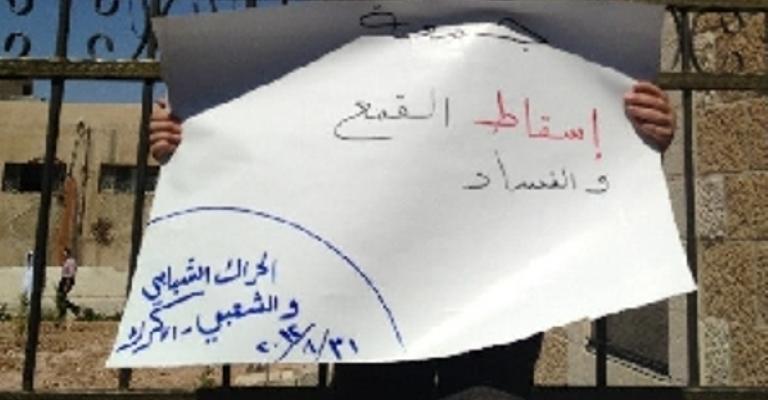 جمعة
إسقاط القمع
والفساد
الحراك الشبابي
والشعبي - الكرك
٢٠١٢/٨/٣١